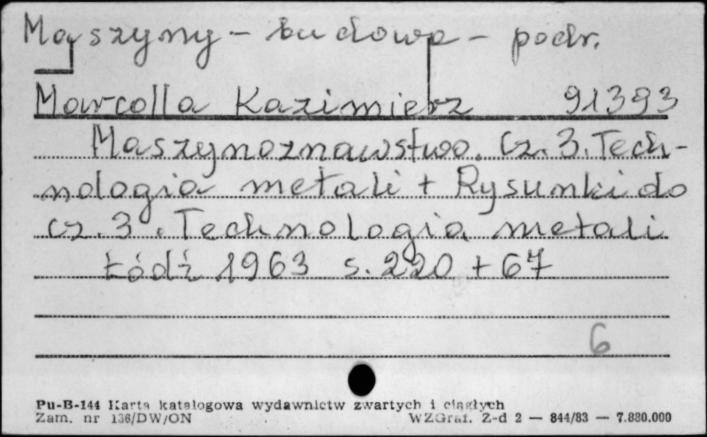 Maszyny - budowa - podr.
Marcolla Kazimierz 91393
Maszynoznawstwo. Cz. 3. Tech-
nologia metali + Rysunki do
cz. 3. Technologia metali
Łódź 1963 s. 220 + 67
6
Pu-B-144 Karta katalogowa wydawnictw zwartych i ciągłych
Zam. nr 136/DW/ON WZGraf. Z-d 2 — 844/83 — 7.880.000